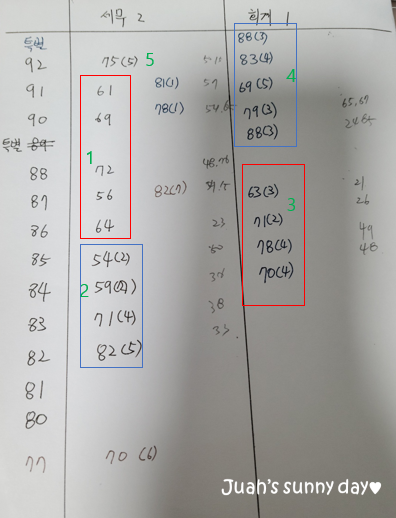 세무 2 회계 1
특별 88(3)
92 75(5) 5 83(4)
91 61 81(1) 57 69(5) 4
90 69 78(1) 79(3) 65.69
특별 88(3)
1
88 72 48.76
87 56 82(7) 63(3) 21
26
86 64 23 71(2) 3 49
85 54(2) 78(4) 48
84 2 59(2) 70(4)
83 71(4) 38
82 82(5) 33
81
80
77 70(6)
Juah's sunny day♥